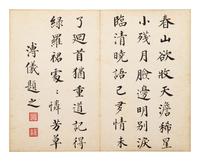 春山欲收天澹稀星
小殘月臉邊明別淚
臨清曉語已多情未
了迴首猶重道記得
綠羅裙處〻憐芳草
溥儀題之